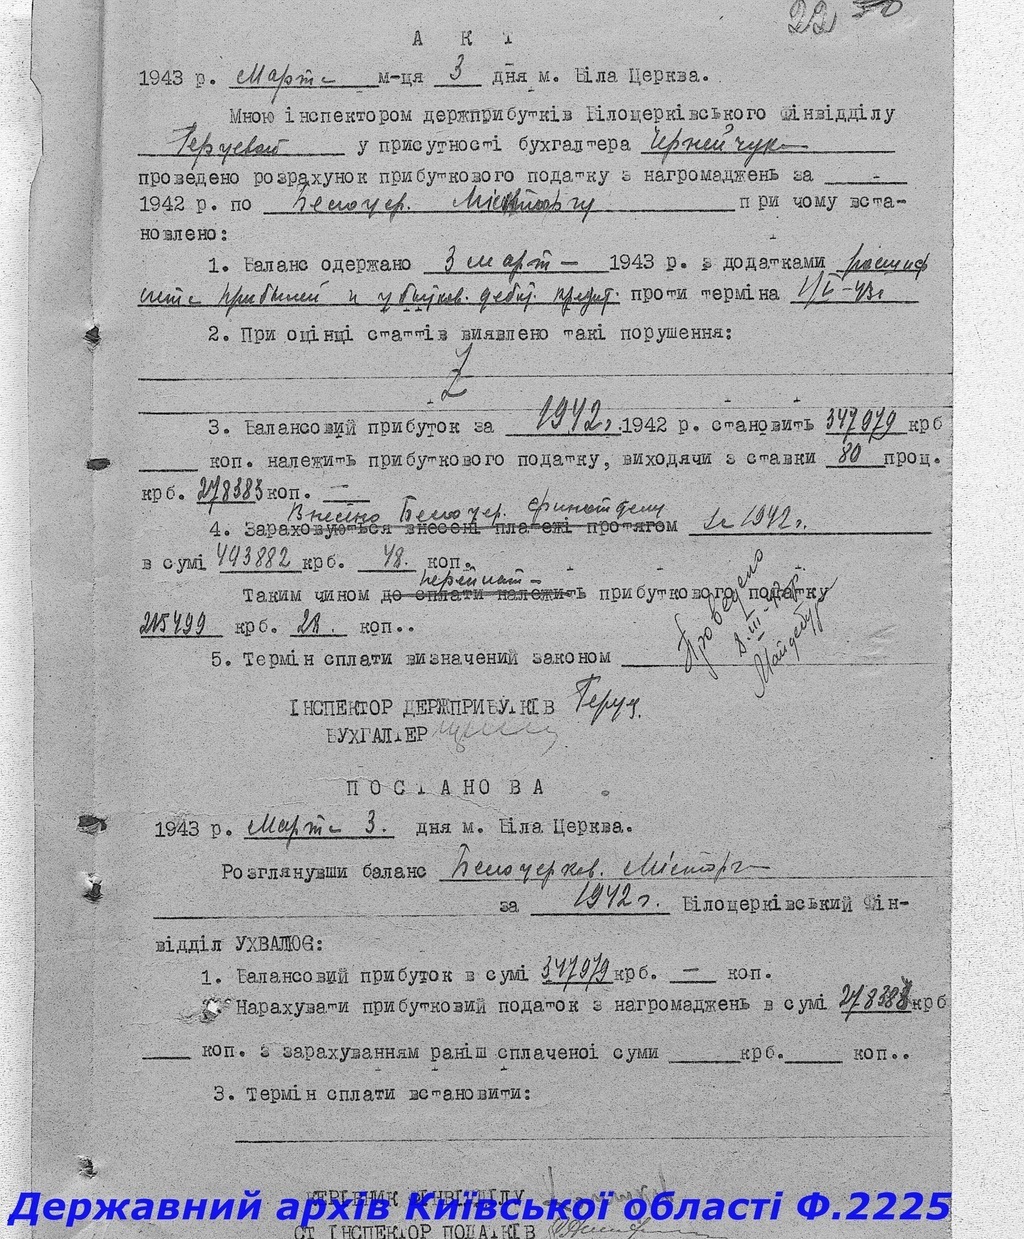 22
А К Т
1943 р. Март м-ця 3 дня м. Біла Церква.
Мною інспектором держприбутків Білоцерківського Фінвідділу
у присутності бухгалтера Чернейчук
проведено розрахунок прибуткового податку з нагромаджень за -
1942 р. по Белоцер. Місьторгу при чому вста-
новлено:
1. Баланс одержано 3 март 1943 р. з додатками
прибылей и проти терміна
2. При оцінці статтів виявлено такі порушення:
Z
3. Балансовий прибуток за 1942г. 1942 р. становить 347979 крб
коп. належить прибуткового податку, виходячи з ставки 80 проц.
крб. 278383 коп. —
Внесено Белоцер. финотделу
4. Зараховуються внесені платежі протягом за 1942г.
в сумі 493882 крб. 48. коп.
переплат
Таким чином до сплати належить прибуткового податку
215499 крб. 28. коп..
5. Термін сплати визначений законом
Проведено
ІНСПЕКТОР ДЕРЖПРИБУТКІВ Геруц.
БУХГАЛТЕР
П О С Т А Н О В А
1943 р. Март 3. дня м. Біла Церква.
Розглянувши баланс Белоцерков. Місторг
за 1942г. Білоцерківський Фін-
відділ УХВАЛЮЄ:
1. Балансовий прибуток в сумі 347979 крб. — коп.
Нарахувати прибутковий податок з нагромаджень в сумі 278383 крб
коп. з зарахуванням раніш сплаченої суми крб. коп..
3. Термін сплати встановити:
КЕРІВНИК ФІНВІДДІЛУ
Державний архів Київської області Ф.2225
СТ ІНСПЕКТОР ПОДАТКІВ